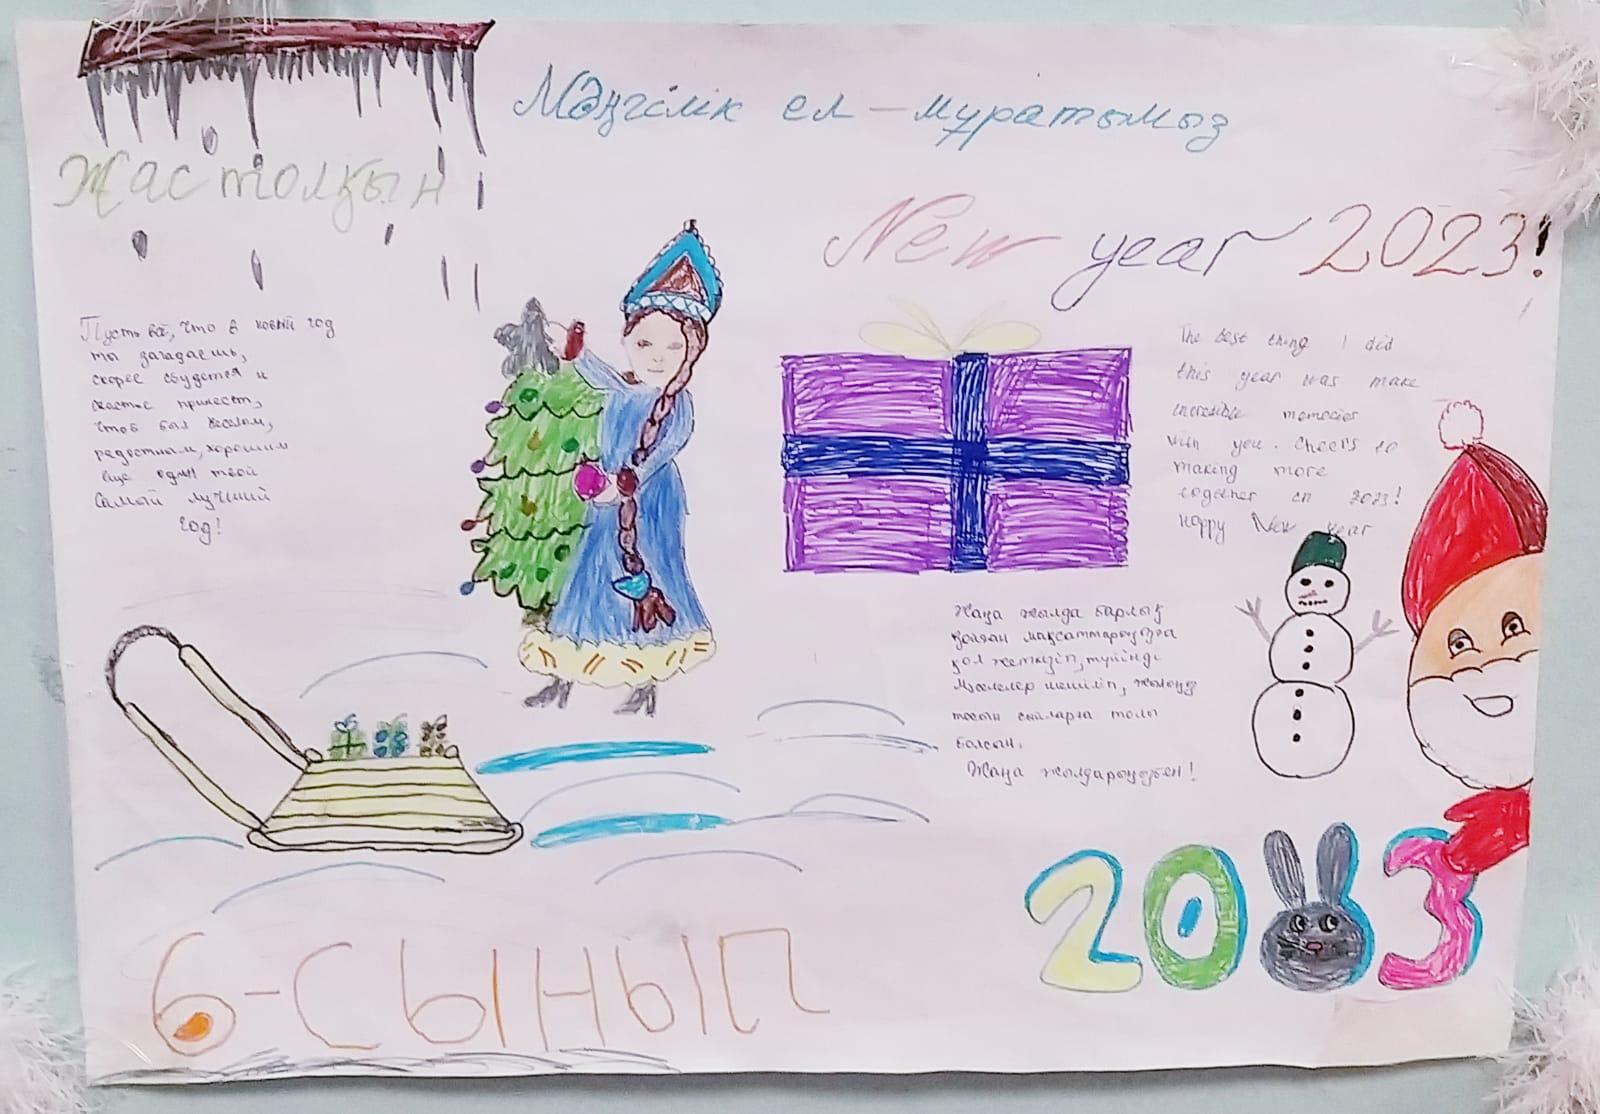 Мәңгілік ел – мұратымыз
Жас толқын
New year 2023!
Пусть всё, что в новый год
ты загадаешь,
скорее сбудется и
счастье принест,
чтоб был веселым,
радостным, хорошим
еще один твой
самый лучший
год!
The best thing I did
this year was make
incredible memories
with you. Cheers to
making more
together in 2023!
Happy New Year
Жаңа жылда барлық
қойған мақсаттарыңызға
қол жеткізіп, түйінді
мәселелер шешіліп, жылыңыз
тосын сыйларға толы
болсын.
Жаңа жылдарыңызбен!
2023
6-СЫНЫП